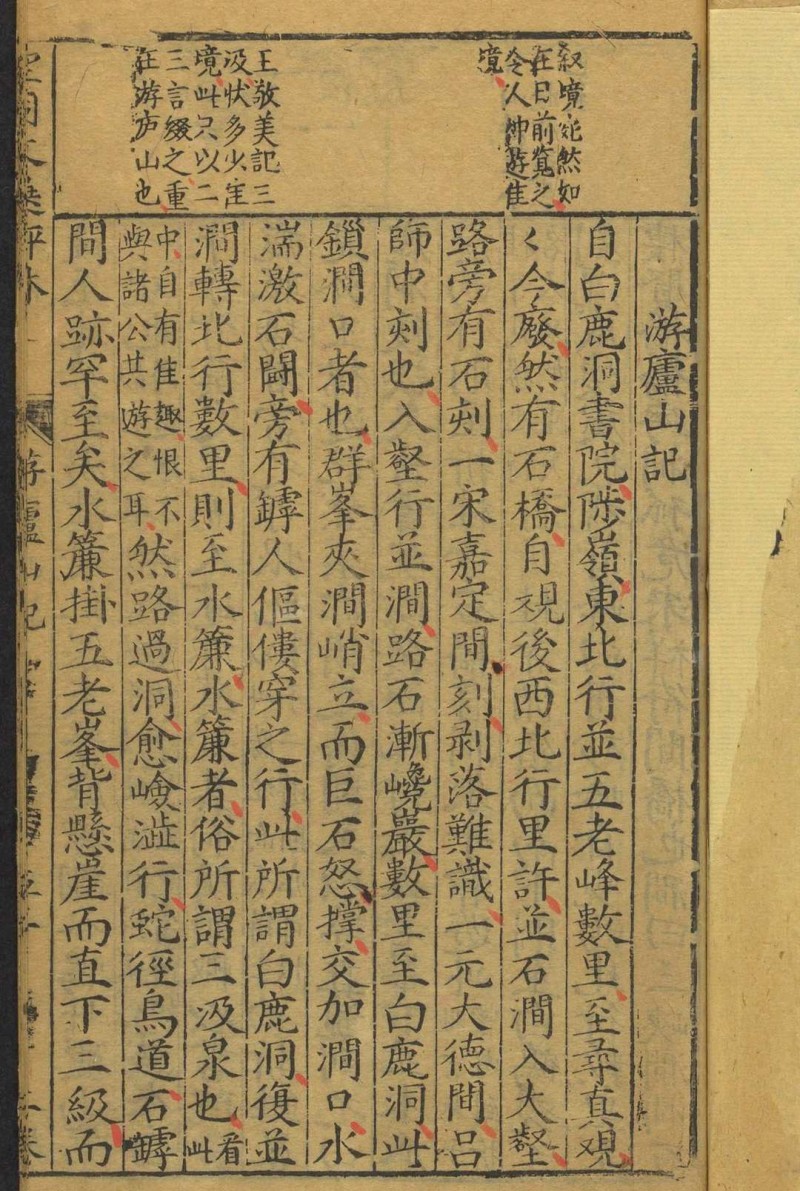 叙境宛然如
在目前覧之
令人神遊佳
境
王敬美記三
汲状多少
境此只以二
三言綴之重
在游庐山也
游廬山記
自白鹿洞書院陟嶺東北行並五老峰數里至尋真觀
〻今廢然有石橋自觀後西北行里許並石澗入大壑
路旁有石刻一宋嘉定間刻剥落難識一元大德間吕
師中刻也入壑行並澗路石漸巉巖數里至白鹿洞此
鎖澗口者也群峯夾澗峭立而巨石怒撐交加澗口水
湍激石鬪旁有罅人傴僂穿之行此所謂白鹿洞復並
澗轉北行數里則至水簾水簾者俗所謂三汲泉也看此
中自有佳趣恨不
與諸公共遊之耳然路過洞愈嶮澁行蛇徑鳥道石罅
間人跡罕至矣水簾掛五老峯背懸崖而直下三級而